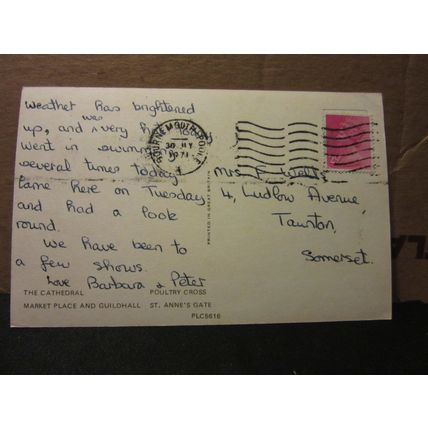 weather has brightened
up, and was very hot today
went in swimming
several times today!
Came here on Tuesday
and had a look
round.
We have been to
a few shows.
Love Barbara & Peter
THE CATHEDRAL POULTRY CROSS
MARKET PLACE AND GUILDHALL ST. ANNE'S GATE
PLC5616
PRINTED IN GREAT BRITAIN
BOURNEMOUTH-POOLE
1971
Mrs F
4, Ludlow Avenue
Taunton,
Somerset.